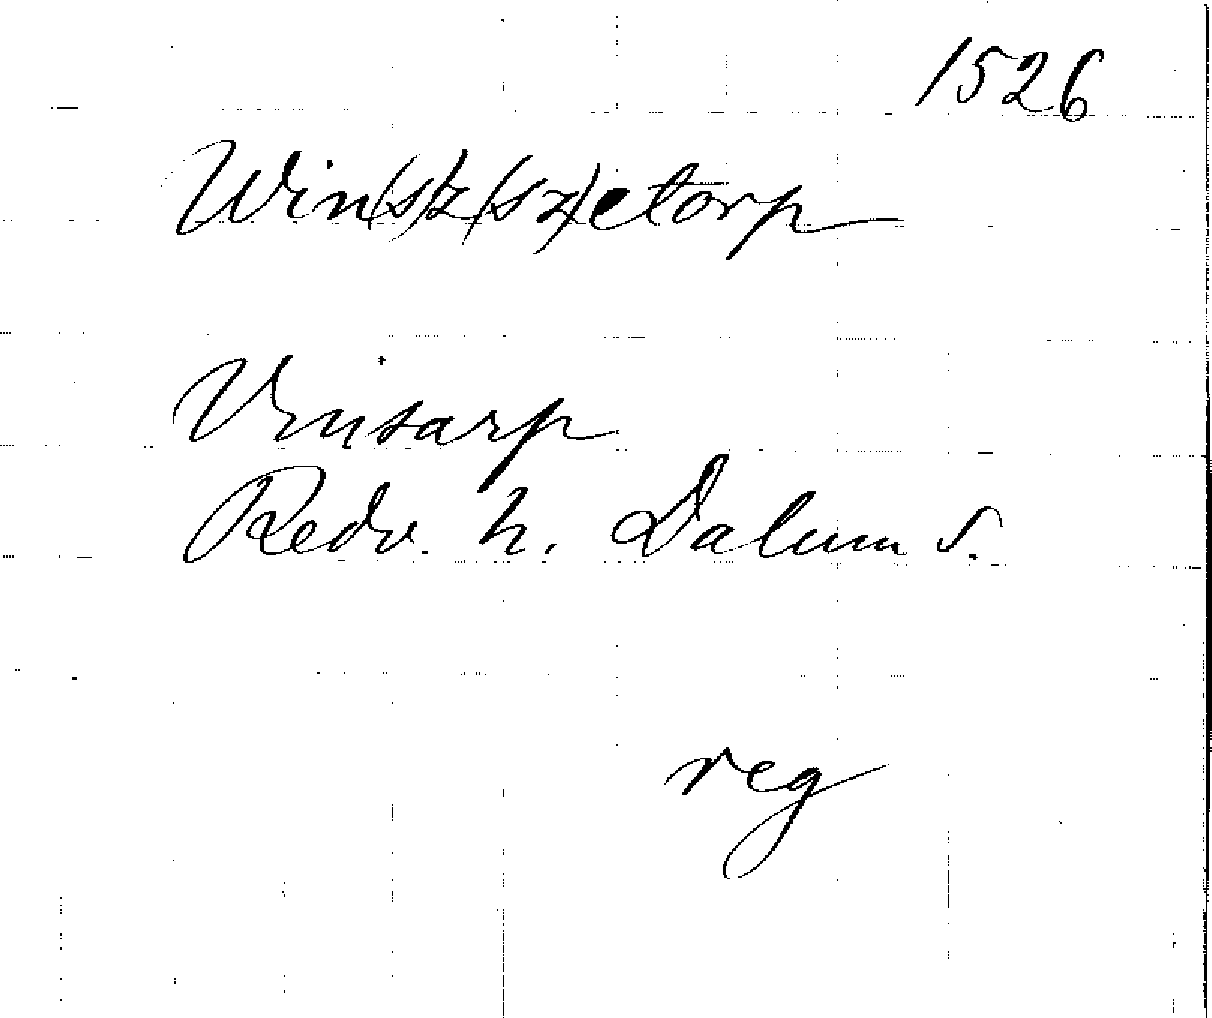 1526
Win(s)z(sz)etorp
Vinsarp
Redv. h. Dalum s.
reg